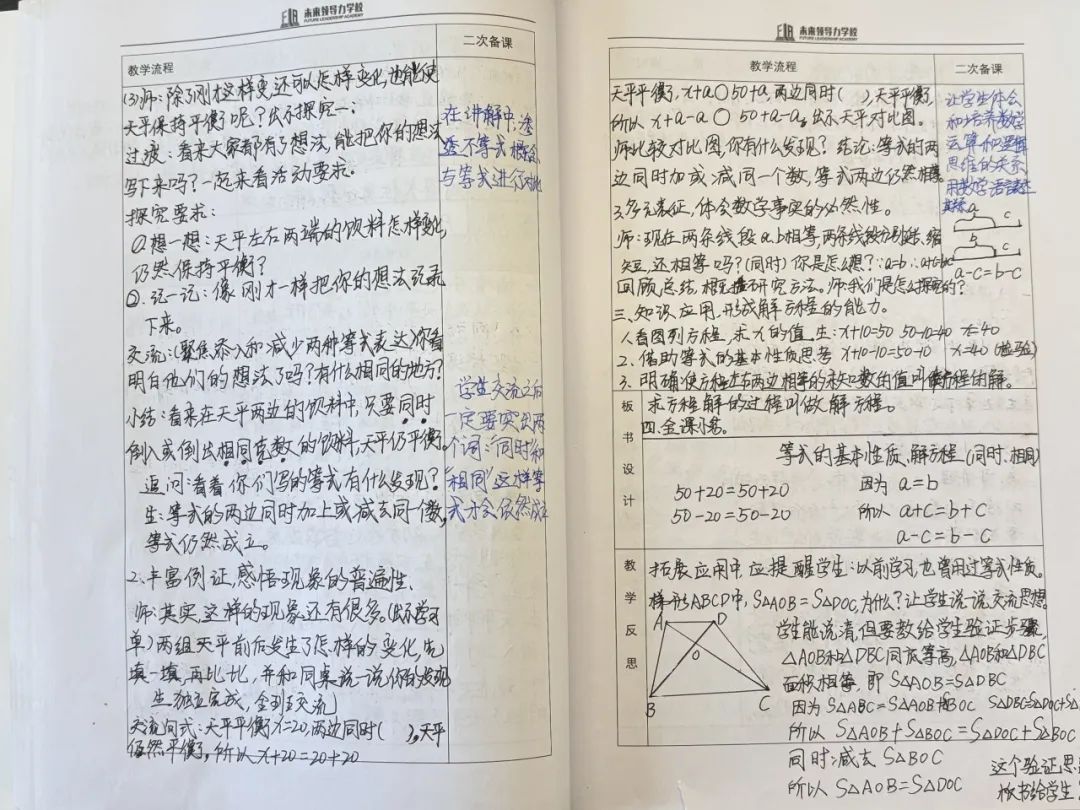 未来领导力学校
FUTURE LEADERSHIP ACADEMY
教学流程
二次备课
(3)师:除了刚才这样变,还可以怎样变化,也能使
天平保持平衡呢?出示探究一:
过渡:看来大家都有了想法,能把你的想法
写下来吗?一起来看活动要求。
探究要求:
①想一想:天平左右两端的饮料怎样变化,
仍然保持平衡?
②记一记:像刚才一样把你的想法记录
下来。
交流:(聚焦添入和减少两种等式表达)你看
明白他们的想法了吗?有什么相同的地方?
小结:看来在天平两边的饮料中,只要同时
倒入或倒出相同克数的饮料,天平仍平衡。
追问:看看你们写的等式有什么发现?
生:等式的两边同时加上或减去同一个数,
等式仍然成立。
2.丰富例证,感悟现象的普遍性.
师:其实,这样的现象还有很多。(出示学习
单)两组天平前后发生了怎样的变化,先
填一填,再比一比,并和同桌说一说你的发现
生独立完成,全班交流
交流问式:天平平衡x=20,两边同时( ),天平
仍然平衡,所以x+20=20+20
在讲解中,渗
透不等式概念,
与等式进行对比
学生交流之后
一定要突出两
个词:“同时”和
“相同”这样等
式才会依然成立
未来领导力学校
FUTURE LEADERSHIP ACADEMY
教学流程
二次备课
天平平衡,x+a○50+a,两边同时( ),天平平衡,
所以x+a-a○50+a-a。出示天平对比图。
师:比较对比图,你有什么发现?结论:等式的两
边同时加或减同一个数,等式两边仍然相等
3.多元表征,体会数学事实的必然性。
师:现在两条线段a、b相等,两条线段分别延长、缩
短,还相等吗?(同时)你是怎么想?∵a=b∴a+c=b+c
回顾总结,梳理研究方法。师:我们是怎么探究的?
三.知识应用,形成解方程的能力。
1.看图列方程,求x的值.生:x+10=50 50-10=40 x=40
2.借助等式的基本性质思考 x+10-10=50-10 x=40(检验)
3.明确使方程左右两边相等的未知数的值叫做方程的解。
求方程解的过程叫做解方程。
四.全课小结。
让学生体会
和培养数学
运算和逻辑
思维的关系,
用数学语言表达
a c
b c
a-c=b-c
板书设计
等式的基本性质,解方程(同时,相同)
50+20=50+20 因为 a=b
50-20=50-20 所以 a+c=b+c
a-c=b-c
教学反思
拓展应用中,应提醒学生:以前学习,也曾用过等式性质。
梯形ABCD中,S△AOB=S△DOC,为什么?让学生说一说,交流思想。
A D
O
B C
学生能说清,但要教给学生验证步骤,
△AOB和△DBC同底等高,△AOB和△DBC
面积相等,即S△AOB=S△DBC
因为S△ABC=S△AOB+BOC S△DBC=S△DOC+S△
所以 S△AOB+S△BOC=S△DOC+S△BOC
同时减去S△BOC
所以 S△AOB=S△DOC
这个验证思
板书给学生